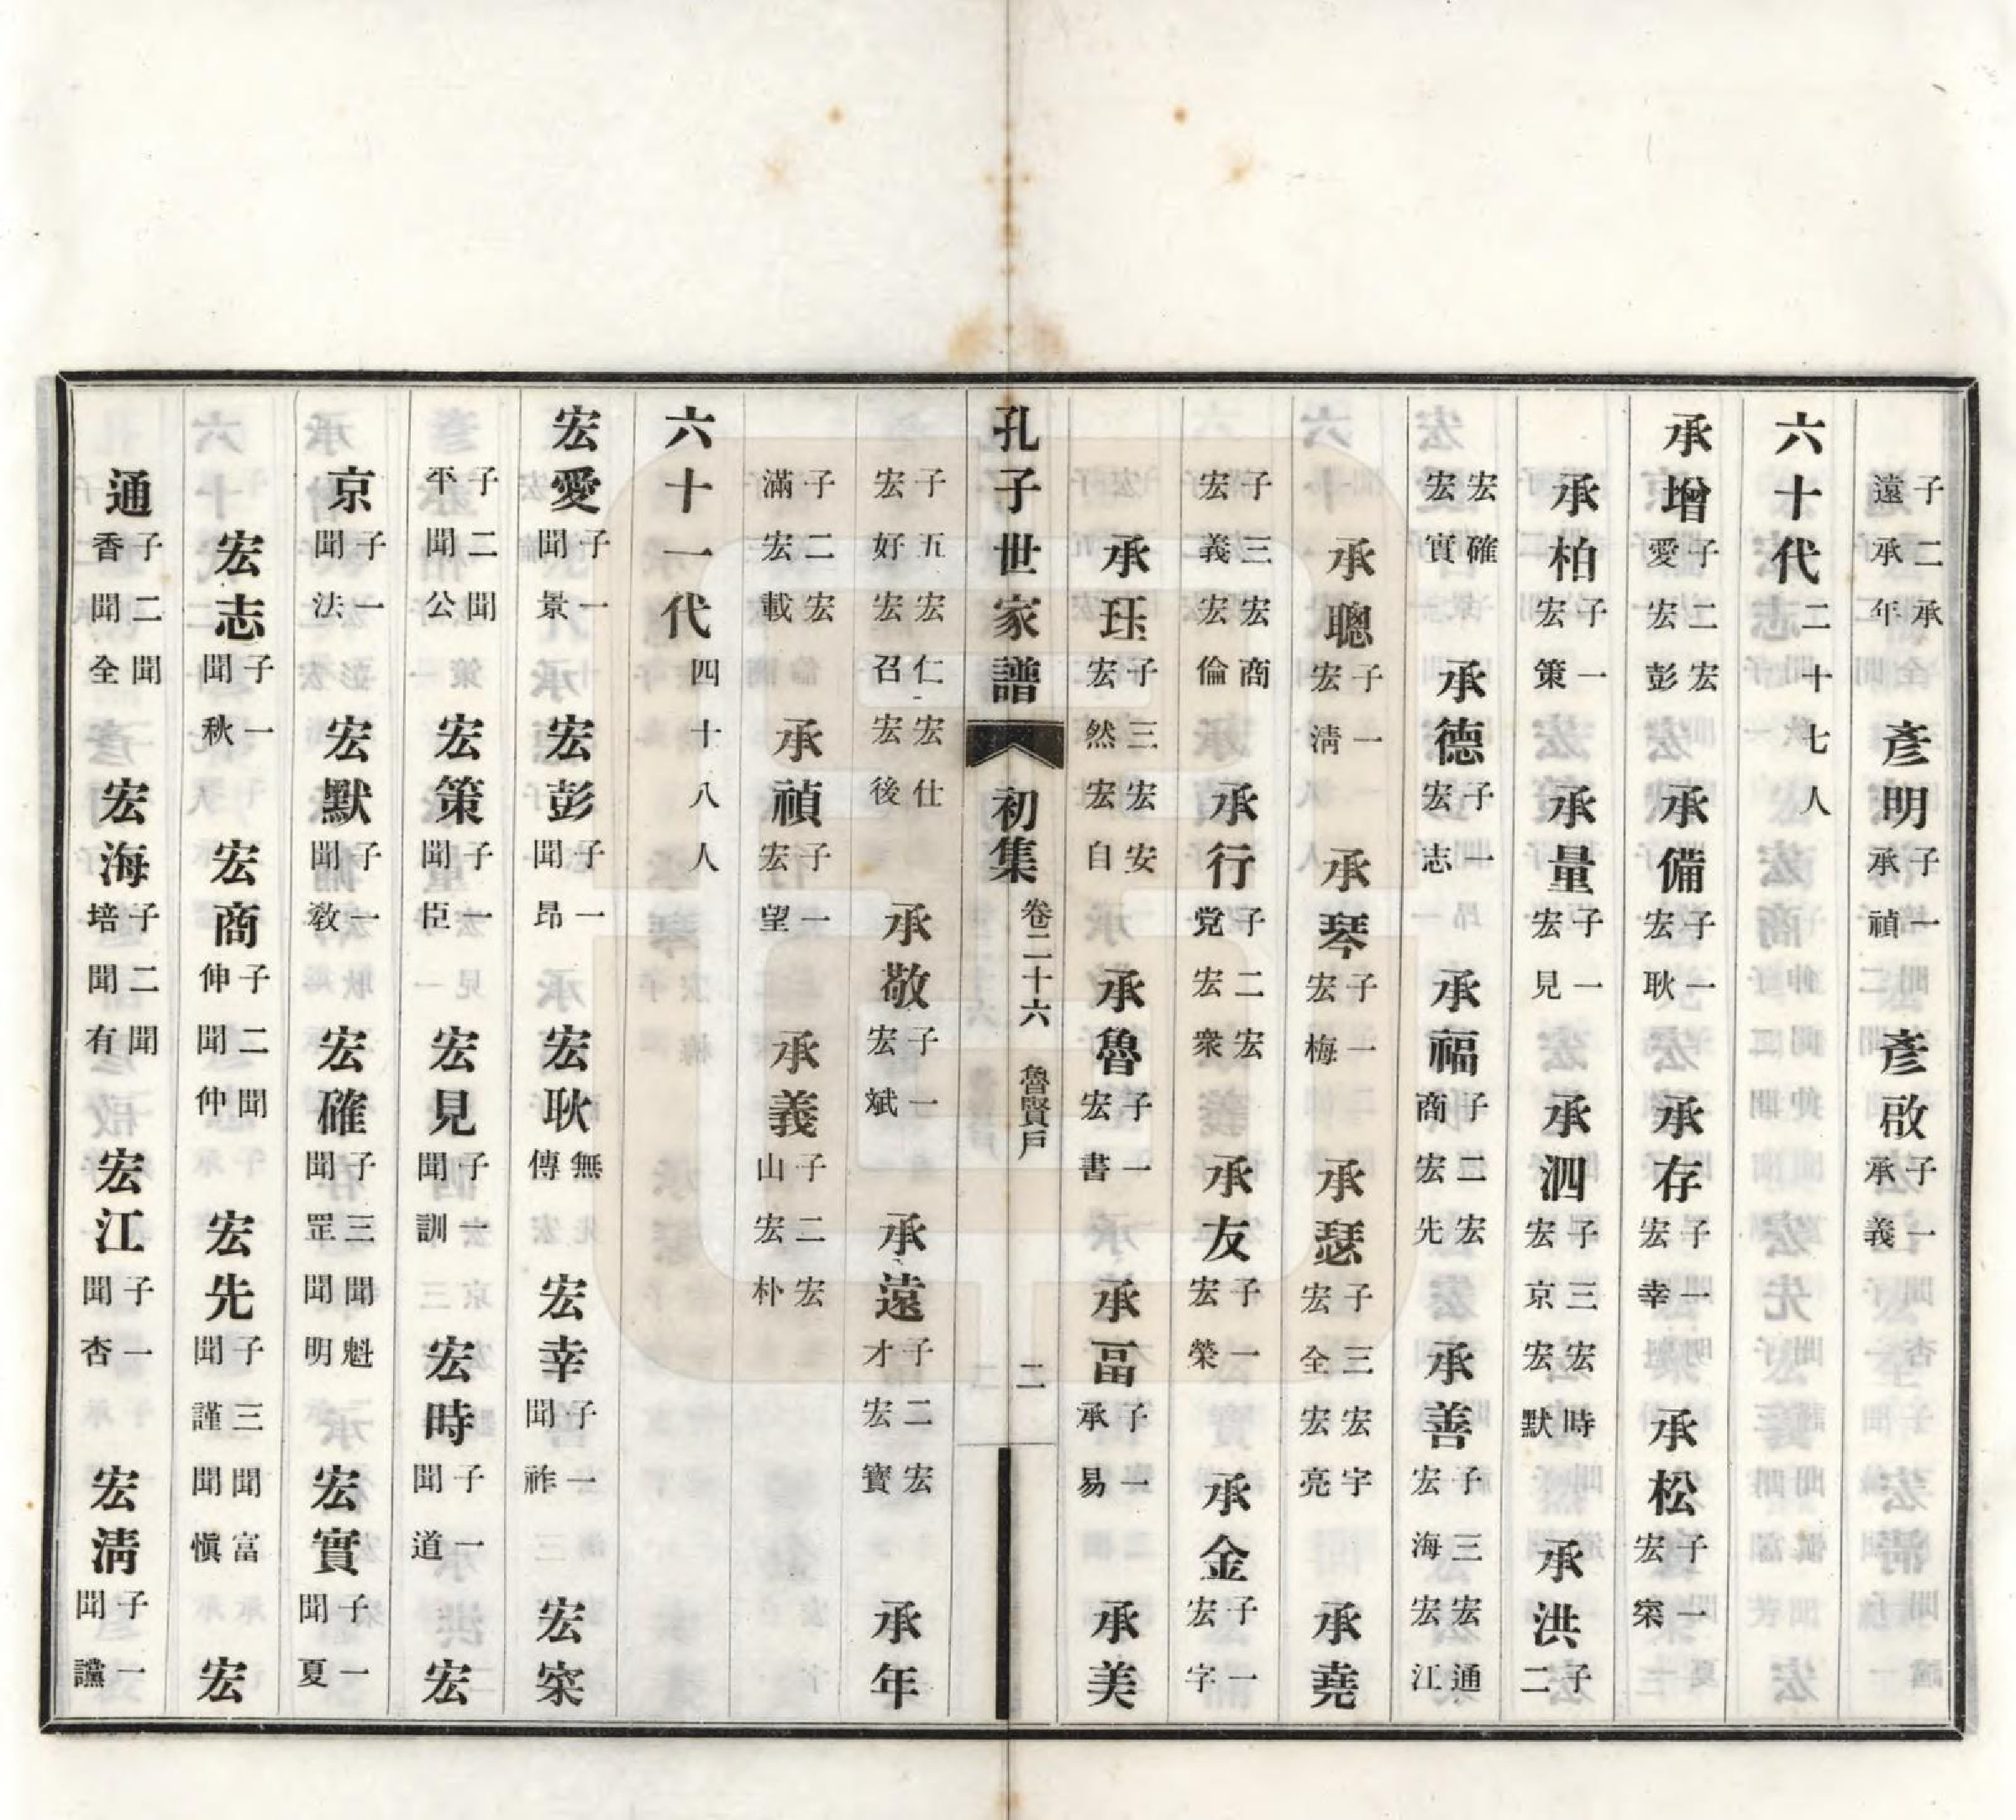 子二承遠承年 彥明 子一承禎 彥啟 子一承義
六十代 二十七人
承增 子二宏愛宏彭 承備 子一宏耿 承存 子一宏幸 承松 子一宏寀
承柏 子一宏策 承量 子一宏見 承泗 子三宏時宏京宏默 承洪 子二
宏確宏實 承德 子一宏志 承福 子二宏商宏先 承善 子三宏通宏海宏江
承聰 子一宏淸 承琴 子一宏梅 承瑟 子三宏宇宏全宏亮 承堯
子三宏商宏義宏倫 承行 子二宏党宏衆 承友 子一宏榮 承金 子一宏字
承珏 子三宏安宏然宏自 承魯 子一宏書 承畐 子一承易 承美
孔子世家譜 初集 卷二十六 魯賢戶 二
子五宏仁宏仕宏好宏召宏後 承敬 子一宏斌 承遠 子二宏才宏寶 承年
子二宏滿宏載 承禎 子一宏望 承義 子二宏山宏朴
六十一代 四十八人
宏愛 子一聞景 宏彭 子一聞昂 宏耿 無傳 宏幸 子一聞祚 宏寀
子二聞平聞公 宏策 子一聞臣 宏見 子一聞訓 宏時 子一聞道 宏
京 子一聞法 宏默 子一聞敎 宏確 子三聞魁聞罡聞明 宏實 子一聞夏
宏志 子一聞秋 宏商 子二聞伸聞仲 宏先 子三聞富聞謹聞愼 宏
通 子二聞香聞全 宏海 子二聞培聞有 宏江 子一聞杏 宏淸 子一聞讜